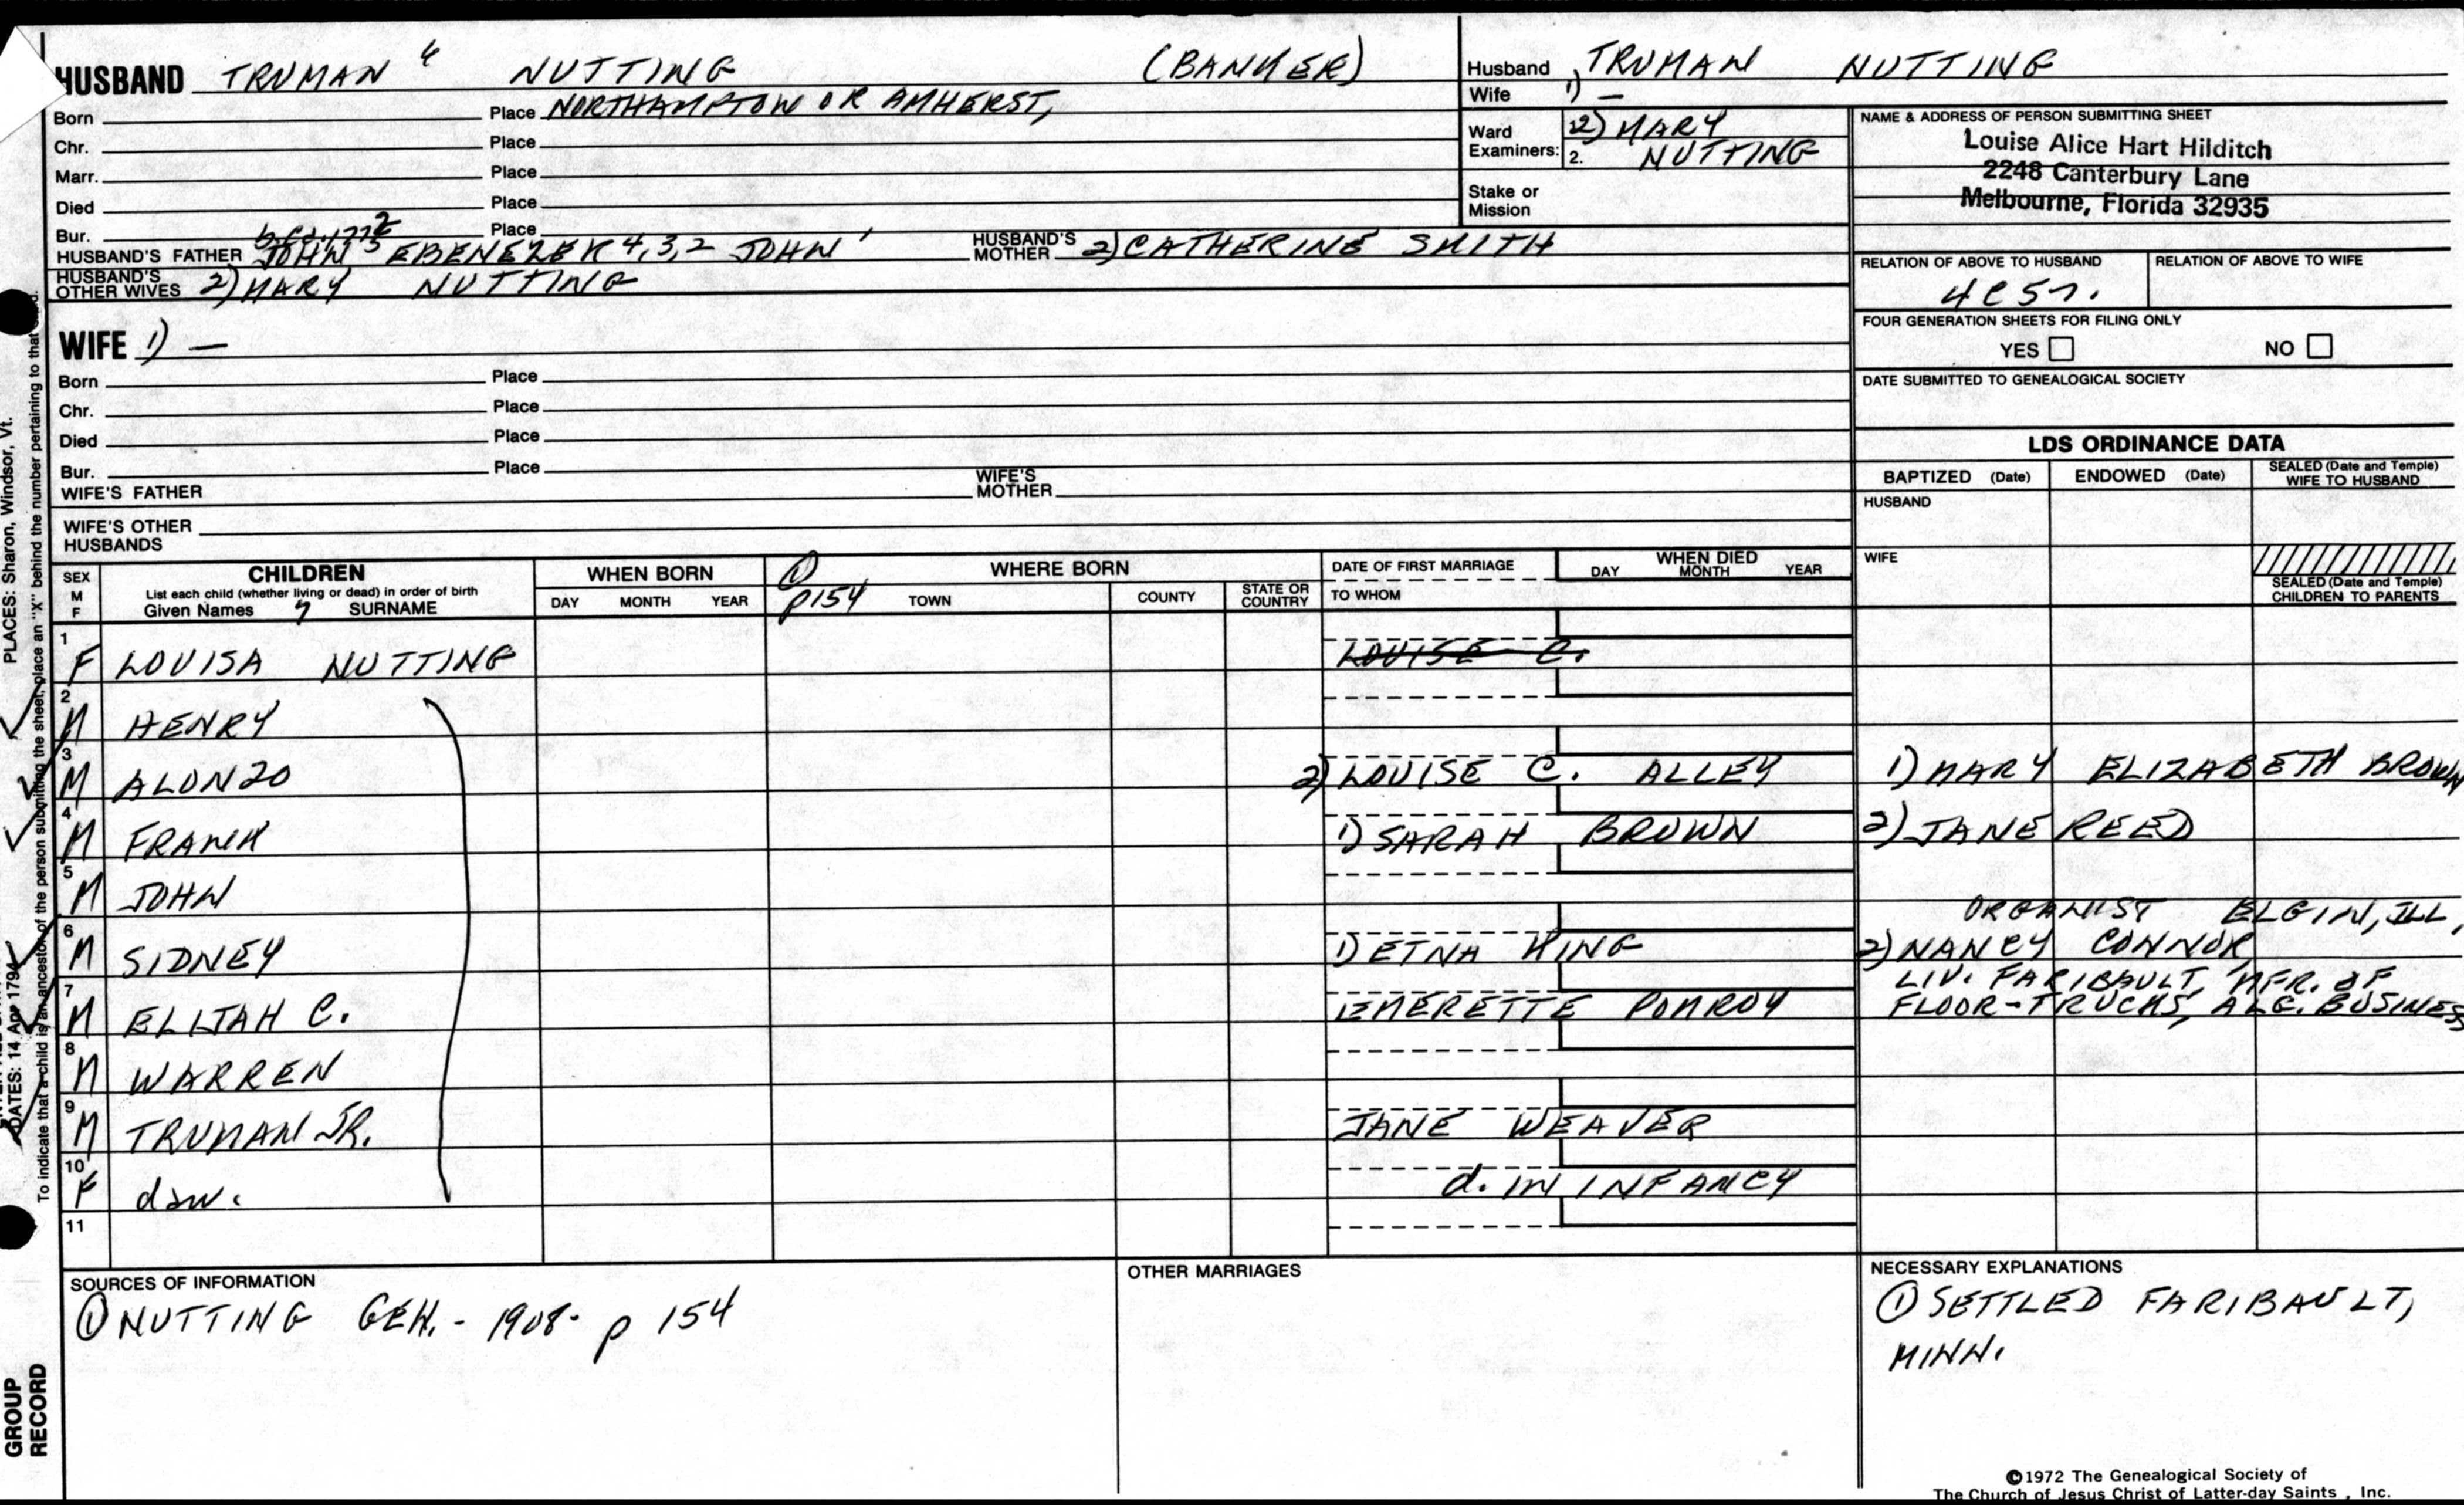 HUSBAND TRUMAN 6 NUTTING (BANKER)
Born Place NORTHAMPTON OR AMHERST,
Chr. Place
Marr. Place
Died Place
Bur. Place
HUSBAND'S FATHER JOHN 5 EBENEZER 4,3,2 JOHN 1 HUSBAND'S MOTHER 2) CATHERINE SMITH
HUSBAND'S OTHER WIVES 2) MARY NUTTING
WIFE 1) —
Born Place
Chr. Place
Died Place
Bur. Place
WIFE'S FATHER WIFE'S MOTHER
WIFE'S OTHER HUSBANDS
Husband TRUMAN NUTTING
Wife 1) —
Ward Examiners: 2) MARY
2. NUTTING
Stake or Mission
NAME & ADDRESS OF PERSON SUBMITTING SHEET
Louise Alice Hart Hilditch
2248 Canterbury Lane
Melbourne, Florida 32935
RELATION OF ABOVE TO HUSBAND RELATION OF ABOVE TO WIFE
FOUR GENERATION SHEETS FOR FILING ONLY
YES NO
DATE SUBMITTED TO GENEALOGICAL SOCIETY
LDS ORDINANCE DATA
BAPTIZED (Date) ENDOWED (Date) SEALED (Date and Temple) WIFE TO HUSBAND
HUSBAND
WIFE
SEALED (Date and Temple) CHILDREN TO PARENTS
SEX M F
CHILDREN
List each child (whether living or dead) in order of birth
Given Names 7 SURNAME
WHEN BORN
DAY MONTH YEAR
① p154
WHERE BORN
TOWN COUNTY STATE OR COUNTRY
DATE OF FIRST MARRIAGE
TO WHOM
WHEN DIED
DAY MONTH YEAR
1 F LOUISA NUTTING LOUISE C.
2 M HENRY
3 M ALONZO 2) LOUISE C. ALLEY 1) MARY ELIZABETH BROWN
4 M FRANK 1) SARAH BROWN 2) JANE REED
5 M JOHN
ORGANIST ELGIN, ILL,
6 M SIDNEY 1) ETNA KING 2) NANCY CONNOR
LIV. FARIBAULT, MFR. OF
7 M ELIJAH C. EMERETTE POMROY FLOOR-TRUCKS, BUSINESS
8 M WARREN
9 M TRUMAN JR. JANE WEAVER
10 F dau. d. IN INFANCY
11
SOURCES OF INFORMATION
① NUTTING GEN. - 1908- p 154
OTHER MARRIAGES
NECESSARY EXPLANATIONS
① SETTLED FARIBAULT,
MINN.
©1972 The Genealogical Society of
The Church of Jesus Christ of Latter-day Saints, Inc.
PLACES: Sharon, Windsor, Vt.
DATES: 14 Apr 1794
To indicate that a child is an ancestor of the person submitting the sheet, place an "X" behind the number pertaining to that
GROUP
RECORD